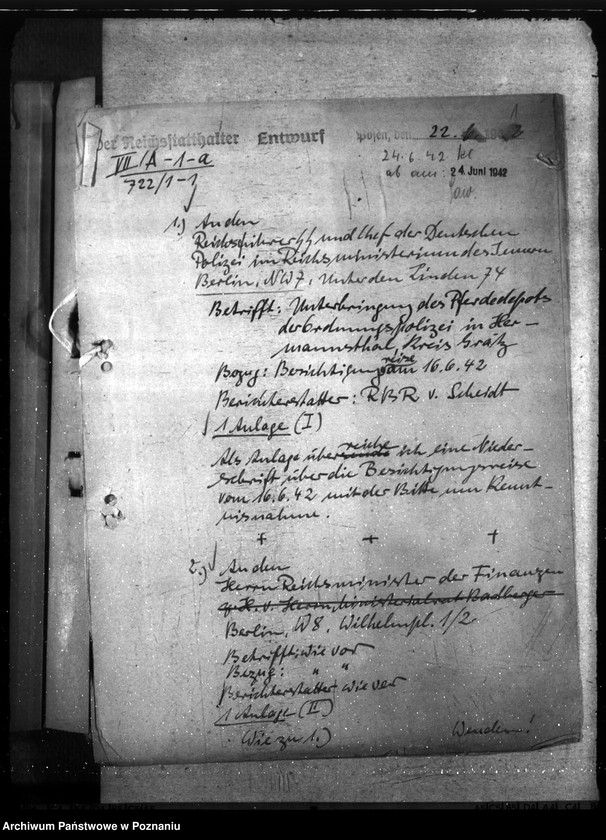 1
Der Reichsstatthalter Entwurf Posen, den 22. 6. 1942
VII/A-1-a
722/1-1
24.6.42 kl
ab am: 24. Juni 1942
1.) An den
Reichsführer SS und Chef der Deutschen
Polizei im Reichsministerium des Innern
Berlin, NW7, Unter den Linden 74
Betrifft: Unterbringung des Pferdedepots
der Ordnungspolizei in Her-
mannsthal, Kreis Grätz
Bezug: Besichtigungsreise am 16.6.42
Berichterstatter: RBR v. Scheidt
1 Anlage (I)
Als Anlage überreiche ich eine Nieder-
schrift über die Besichtigungsreise
vom 16.6.42 mit der Bitte um Kennt-
nisnahme.
+ + +
2.) An den
Herrn Reichsminister der Finanzen
z.H.v. Herrn Ministerialrat
Berlin, W8, Wilhelmpl. 1/2
Betrifft: wie vor
Bezug: " "
Berichterstatter wie vor
1 Anlage (II)
Wie zu 1.) Wenden!
Archiwum Państwowe w Poznaniu